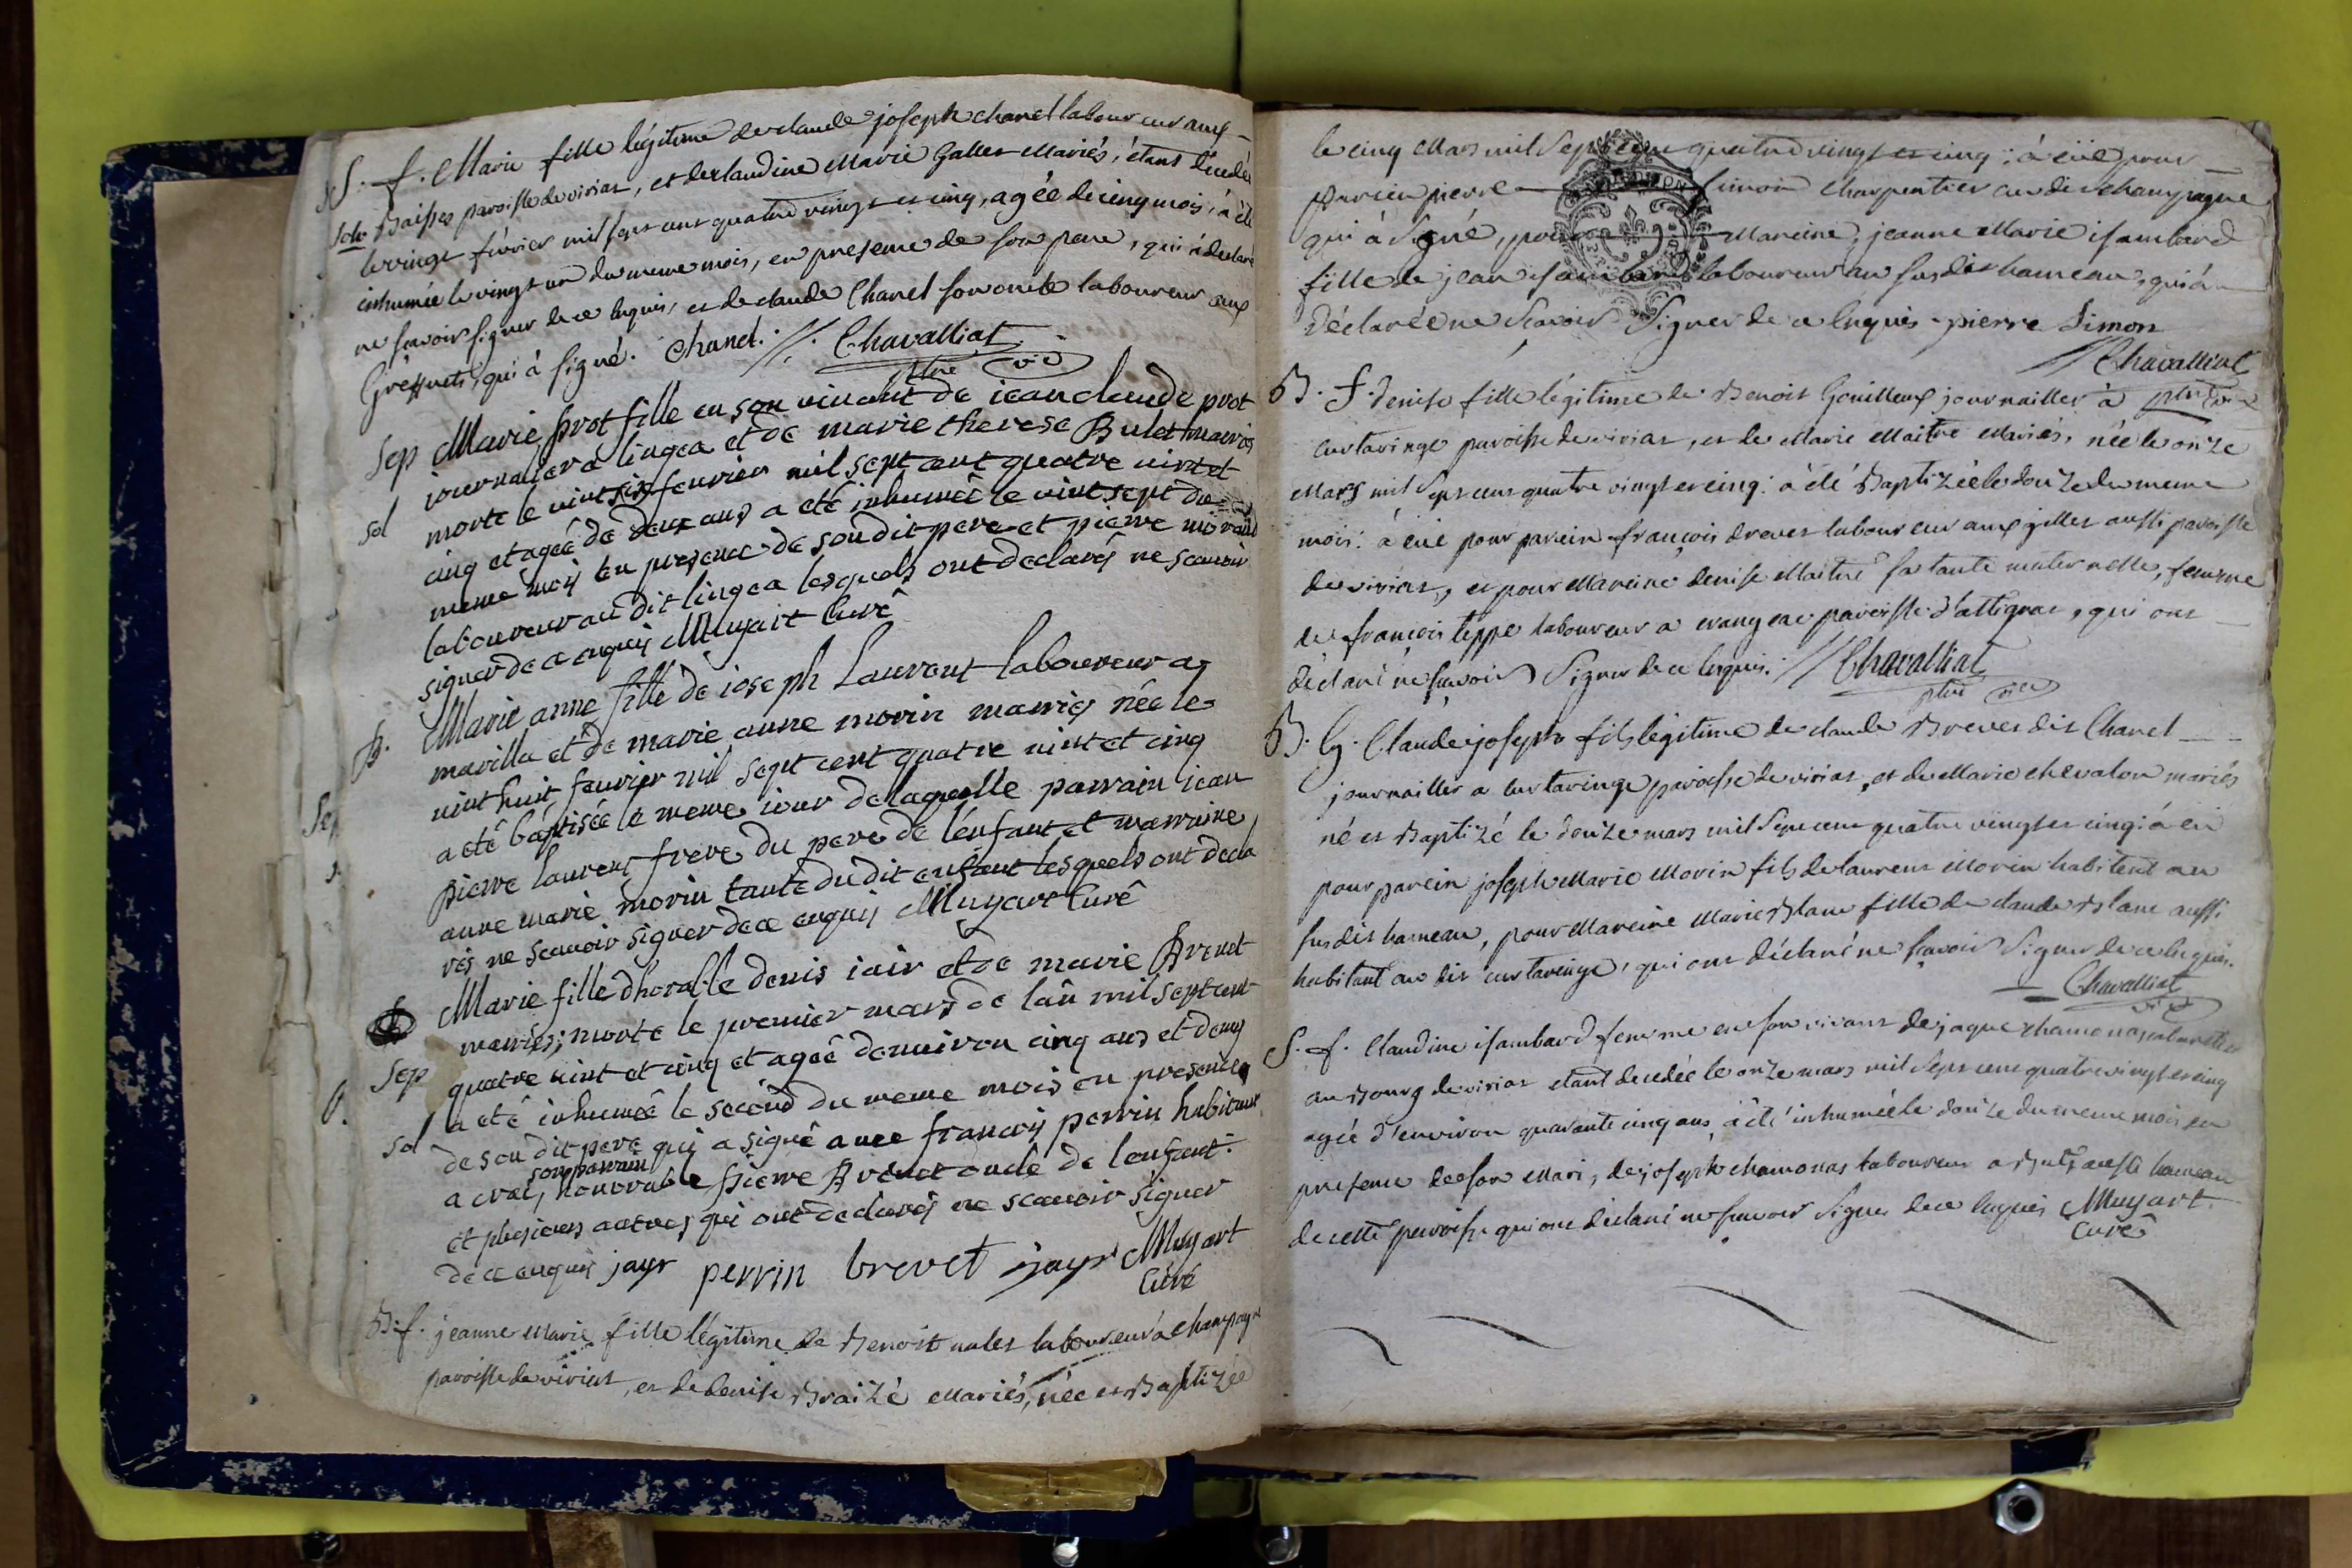 S. f. Marie fille légitime de claude joseph chanel laboureur aux
solv Baisses paroisse de viriat, et de claudine Marie Gallet Mariés, étant décédée
le vingt février mil sept cent quatre vingt et cinq, agée de cinq mois, à été
inhumée le vingt un du meme mois, en presence de son pere, qui à déclaré
ne savoir signer de ce enquis, et de claude Chanel son oncle laboureur aux
qui à signé. chanel. //. Chavalliat
ptre vic
Sep Marie prot fille en son vivant de jean claude prot
journalier a lingea et de marie therese Bulet mariés
sol morte le vint six fevrier mil sept cent quatre vint et
cinq et agée de deux ans a eté inhumée le vint sept du
meme mois en presence de son dit pere et pierre
laboureur au dit lingea lesquels ont declarés ne scavoir
signer de ce enquis Muyart Curé
B. Marie anne fille de joseph Laurent laboureur a
marilla et de marie anne morin mariés née le
vint huit fevrier mil sept cent quatre vint et cinq
a eté baptisée le meme jour de laquelle parrain jean
pierre laurent frere du pere de l'enfant et marraine
anne marie morin tante du dit enfant lesquels ont decla
rés ne scavoir signer de ce enquis Muyart Curé
Marie fille d'horable denis jair et de marie Brevet
mariés; morte le premier mars de l'an mil sept cent
Sep quatre vint et cinq et agée d'environ cinq ans et demy
a eté inhumée le second du meme mois en presence
sol de son dit pere qui a signé avec francois perrin habitant
son parrain
a cras, honorable pierre Brevet oncle de l'enfant
et plusieurs autres qui ont declarés ne scavoir signer
de ce enquis jayr perrin brevet jayr Muyart
Curé
B. f. jeanne Marie fille légitime de Benoit nalet laboureur à champagne
paroisse de viriat, et de denise Braizé Mariés, née et Baptizée
le cinq Mars mil sept cent quatre vingt et cinq; à eüe pour
parein pierre simon charpentier au dit champagne
qui à signé, pour Mareine, jeanne Marie isambard
fille de jean isambard laboureur au susdit hameau, qui à
déclarée ne scavoir signer de ce enquis pierre Simon
// Chavalliat
ptre vic
B. f. denise fille légitime de Benoit Gouilleux journailler à
curtaringe paroisse de viriat, et de Marie Maitre Mariés, née le onze
Mars mil sept cent quatre vingt et cinq: à été Baptizée le douze du meme
mois: à eüe pour parein françois drevet laboureur aux gilles aussi paroisse
de viriat, et pour Mareine denise Maitre sa tante maternelle, femme
de françois teppe laboureur a crangeac paroisse d'attignat, qui ont
déclaré ne savoir signer de ce enquis. // Chavalliat
ptre vic
B. G. Claude joseph fils légitime de claude Brevet dit Chanel
journailler a curtaringe paroisse de viriat, et de Marie chevalon mariés
né et Baptizé le douze mars mil sept cent quatre vingt et cinq: à eü
pour parein joseph Marie Morin fils de laurent Morin habitent au
susdit hameau, pour Mareine Marie Blanc fille de claude Blanc aussi
habitant au dit curtaringe, qui ont déclaré ne savoir signer de ce enquis.
Chavalliat
vic
S. f. Claudine isambard femme en son vivant de jaque chamonas
au Bourg de viriat etant decedée le onze mars mil sept cent quatre vingt et cinq
agée d'environ quarante cinq ans, à été inhumée le douze du meme mois en
presence de son Mari, de joseph chamonas laboureur a hameau
de cette paroisse qui ont déclaré ne savoir signer de ce enquis Muyart
Curé